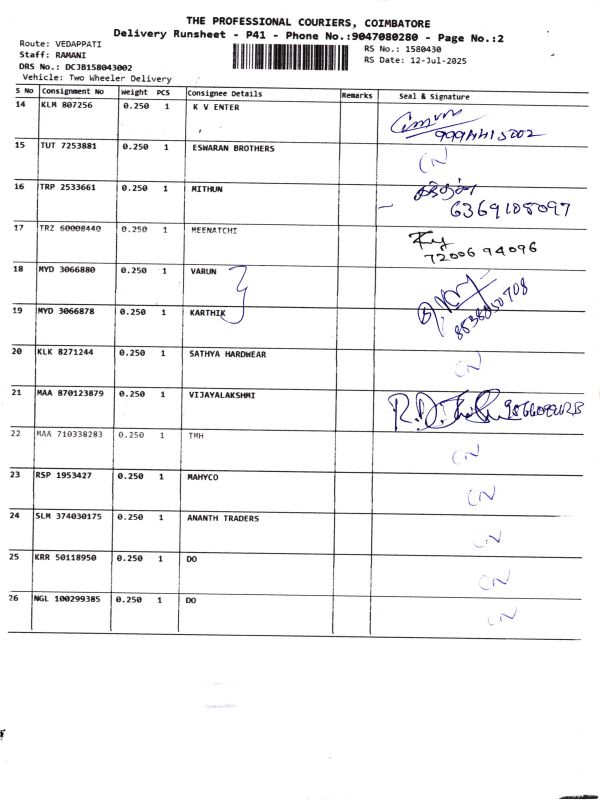 THE PROFESSIONAL COURIERS, COIMBATORE
Delivery Runsheet - P41 - Phone No.:9047080280 - Page No.:2
Route: VEDAPPATI
Staff: RAMANI
DRS No.: DCJB158043002
Vehicle: Two Wheeler Delivery
RS No.: 1580430
RS Date: 12-Jul-2025
S No Consignment No Weight PCS Consignee Details Remarks Seal & Signature
14 KLM 807256 0.250 1 K V ENTER
15 TUT 7253881 0.250 1 ESWARAN BROTHERS CN
16 TRP 2533661 0.250 1 MITHUN
6369108097
17 TRZ 60008440 0.250 1 MEENATCHI
72006 94096
18 MYD 3066880 0.250 1 VARUN
19 MYD 3066878 0.250 1 KARTHIK
20 KLK 8271244 0.250 1 SATHYA HARDWEAR CN
21 MAA 870123879 0.250 1 VIJAYALAKSHMI
22 MAA 710338283 0.250 1 TMH CN
23 RSP 1953427 0.250 1 MAHYCO CN
24 SLM 374030175 0.250 1 ANANTH TRADERS CN
25 KRR 50118950 0.250 1 DO CN
26 NGL 100299385 0.250 1 DO CN